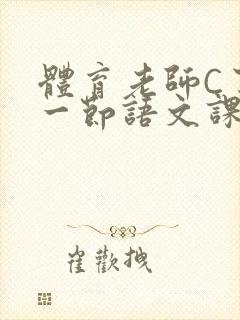 體育老師C
一節語文課
崔歡拽